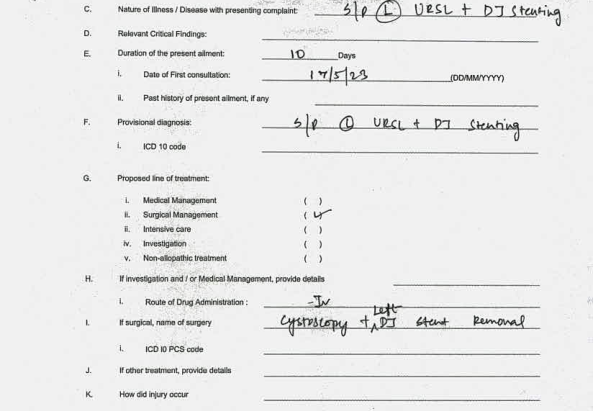 C. Nature of Illness / Disease with presenting complaint: S/p Ⓛ URSL + DJ Stenting
D. Relevant Critical Findings:
E. Duration of the present ailment: 10 Days
i. Date of First consultation: 17/5/23 (DD/MM/YYYY)
ii. Past history of present ailment, if any
F. Provisional diagnosis: S/p Ⓛ URSL + DJ Stenting
i. ICD 10 code
G. Proposed line of treatment:
i. Medical Management ( )
ii. Surgical Management ( ✓ )
ii. Intensive care ( )
iv. Investigation ( )
v. Non-allopathic treatment ( )
H. If investigation and / or Medical Management, provide details
i. Route of Drug Administration : -IV
I. If surgical, name of surgery Cystoscopy + Left DJ stent Removal
i. ICD I0 PCS code
J. If other treatment, provide details
K. How did injury occur